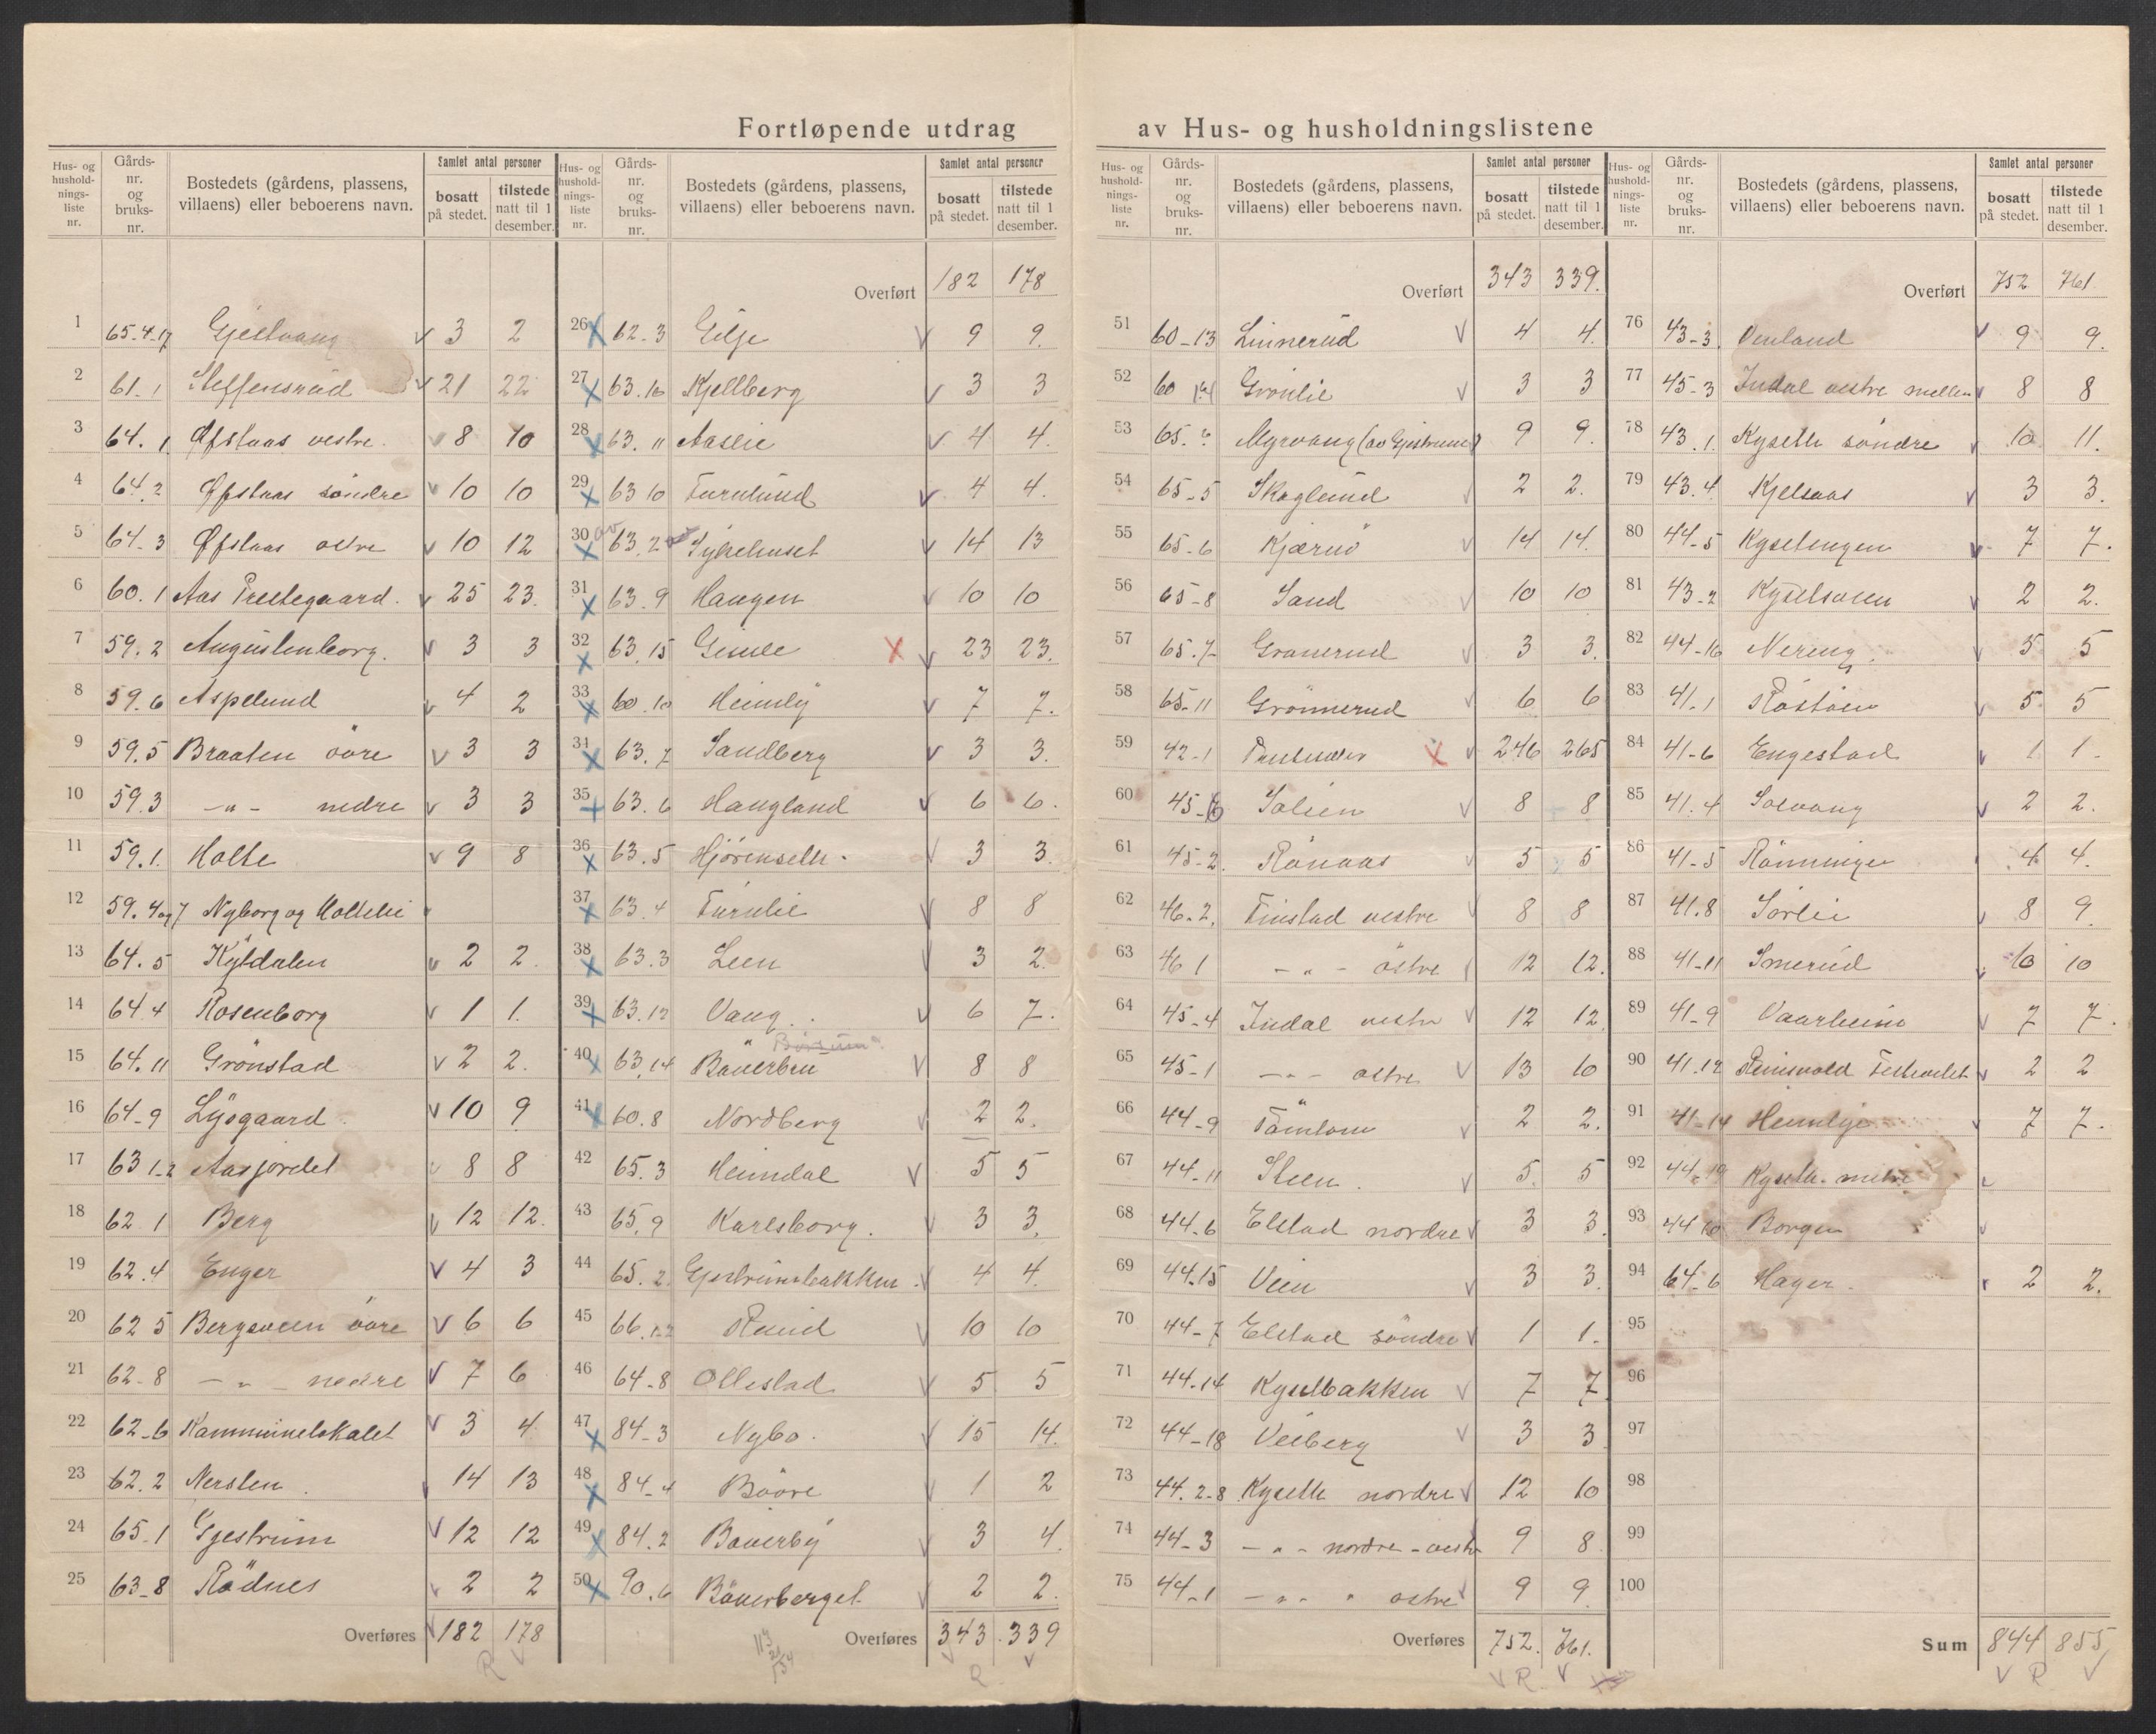 Fortløpende utdrag av Hus- og husholdningslistene
Hus- og husholdnings-liste nr. | Gårds-nr. og bruks-nr. | Bostedets (gårdens, plassens, villaens) eller beboerens navn. | Samlet antal personer bosatt på stedet. | tilstede natt til 1 desember.
1 65.4.17 Gjestvang 3 2
2 61.1 Steffensrud 21 22
3 64.1 Øfstaas vestre. 8 10
4 64.2 Øfstaas söndre 10 10
5 64.3 Øfstaas östre 10 12
6 60.1 Aas Prestegaard. 25 23.
7 59.2 Augustenborg. 3 3
8 59.6 Aspelund 4 2
9 59.5 Braaten övre 3 3
10 59.3 -"- nedre 3 3
11 59.1. Holte 9 8
12 59.4og7 Nyborg og Holtelie
13 64.5 Kyldalen 2 2.
14 64.4 Rosenborg 1 1.
15 64.11 Grönstad 2 2.
16 64-9 Lysgaard. 10 9
17 63 1-2 Aasjordet 8 8
18 62.1 Berg 12 12.
19 62.4 Enger 4 3
20 62 5 Bergsveen övre 6 6
21 62-8 -"- nedre 7 6
22 62-6 Kommunelokalet 3 4
23 62.2 Nersten. 14 13
24 65-1 Gjestrum 12 12
25 63-8 Rödnes 2 2
Overføres 182 178
R
Hus- og husholdnings-liste nr. | Gårds-nr. og bruks-nr. | Bostedets (gårdens, plassens, villaens) eller beboerens navn. | Samlet antal personer bosatt på stedet. | tilstede natt til 1 desember.
Overført 182 178
26 62-3 Gilje 9 9.
27 63.16 Kjellberg 3 3
28 63.11 Aaslie 4 4.
29 63 10 Furulund 4 4.
30 av 63.2 Sykehuset 14 13
31 63.9 Haugen 10 10
32 63.15 Gimle X 23 23.
33 60.10 Heimly 7 7.
34 63.7 Sandberg 3 3.
35 63.6 Haugland 6 6.
36 63.5 Hjörenseth. 3 3.
37 63.4 Furulie 8 8
38 63.3 Leen 3 2.
39 63.12 Vang. 6 7.
40 63.14 Bäverbru 8 8
41 60.8 Nordberg 2 2.
42 65.3 Heimdal 5 5
43 65.9 Karlsborg. 3 3.
44 65.2 Gjestrumsbakken. 4 4.
45 66.1-2 Ruud 10 10
46 64-8 Ollestad 5 5
47 84-3 Nybo. 15 14.
48 84-4 Bööre 1 2
49 84.2 Böverby 3 4.
50 90.6 Böverberget 2 2.
Overføres 343. 339
R
Hus- og husholdnings-liste nr. | Gårds-nr. og bruks-nr. | Bostedets (gårdens, plassens, villaens) eller beboerens navn. | Samlet antal personer bosatt på stedet. | tilstede natt til 1 desember.
Overført 343 339.
51 60-13 Linnerud 4 4.
52 60 Grönlie 3 3
53 65. Myrvang (av Gjestrum) 9 9.
54 65-5 Skoglund 2 2.
55 65-6 Kjærud 14 14.
56 65-8 Sand 10 10
57 65.7 Granerud 3 3.
58 65-11 Grönnerud 6 6
59 42-1 X 246 265
60 45-6 Solien 8 8
61 45-2. Rönaas 5 5
62 46-2. Finstad vestre 8 8
63 46 1 -"- östre 12 12.
64 45-4 Indal vestre 12 12
65 45-1 -"- östre 13 10
66 44-9 Tömtom 2 2.
67 44-11 Steen. 5. 5
68 44-6 Elstad nordre 3 3
69 44.15 Veien 3 3.
70 44-7 Elstad söndre 1 1.
71 44.14 Kysetbakken 7 7
72 44-18 Veiberg 3 3
73 44.2-8 Kyseth nordre 12 10
74 44-3 -"- nordre-vestre 9 8
75 44-1 -"- " östre 9 9.
Overføres 752. 761.
R
Hus- og husholdnings-liste nr. | Gårds-nr. og bruks-nr. | Bostedets (gårdens, plassens, villaens) eller beboerens navn. | Samlet antal personer bosatt på stedet. | tilstede natt til 1 desember.
Overført 752 761.
76 43-3. Venland 9 9.
77 45-3 Indal vestre mellem 8 8
78 43.1. Kyseth söndre 10 11.
79 43.4. Kjelsaas 3 3.
80 44-5 Kysetengen 7 7.
81 43-2 Kysetsveen 2 2.
82 44-16 Nereng. 5 5
83 41.1 Röstöen 5 5
84 41-6 Engestad 1 1.
85 41.4 Solvang 2 2.
86 41-5 Rönningen 4 4.
87 41.8 Sörlie 8 9.
88 41-11 Smerud 10 10
89 41-9 Vaarheim 7 7.
90 41.12 Reinsvold 2 2
91 41-14 Heimlye 7 7.
92 44.19 Kyseth. midtre
93 44 10 Borgen
94 64-6 Hager. 2 2.
95
96
97
98
99
100
Sum 844 855
R